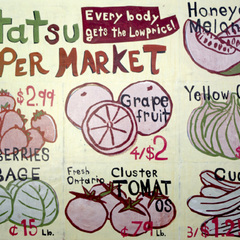 tatsu
PER MARKET
Every body
gets the Low price!
Honey
Melon
$2.99
BERRIES
Grape
fruit
4/$2
Yellow
BAGE
¢15 Lb.
Fresh
Ontario
Cluster
TOMAT
OS
¢79 Lb.
Cu
3/$1.2